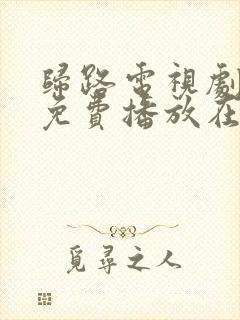 歸路電視劇
免費播放在
覓尋之人